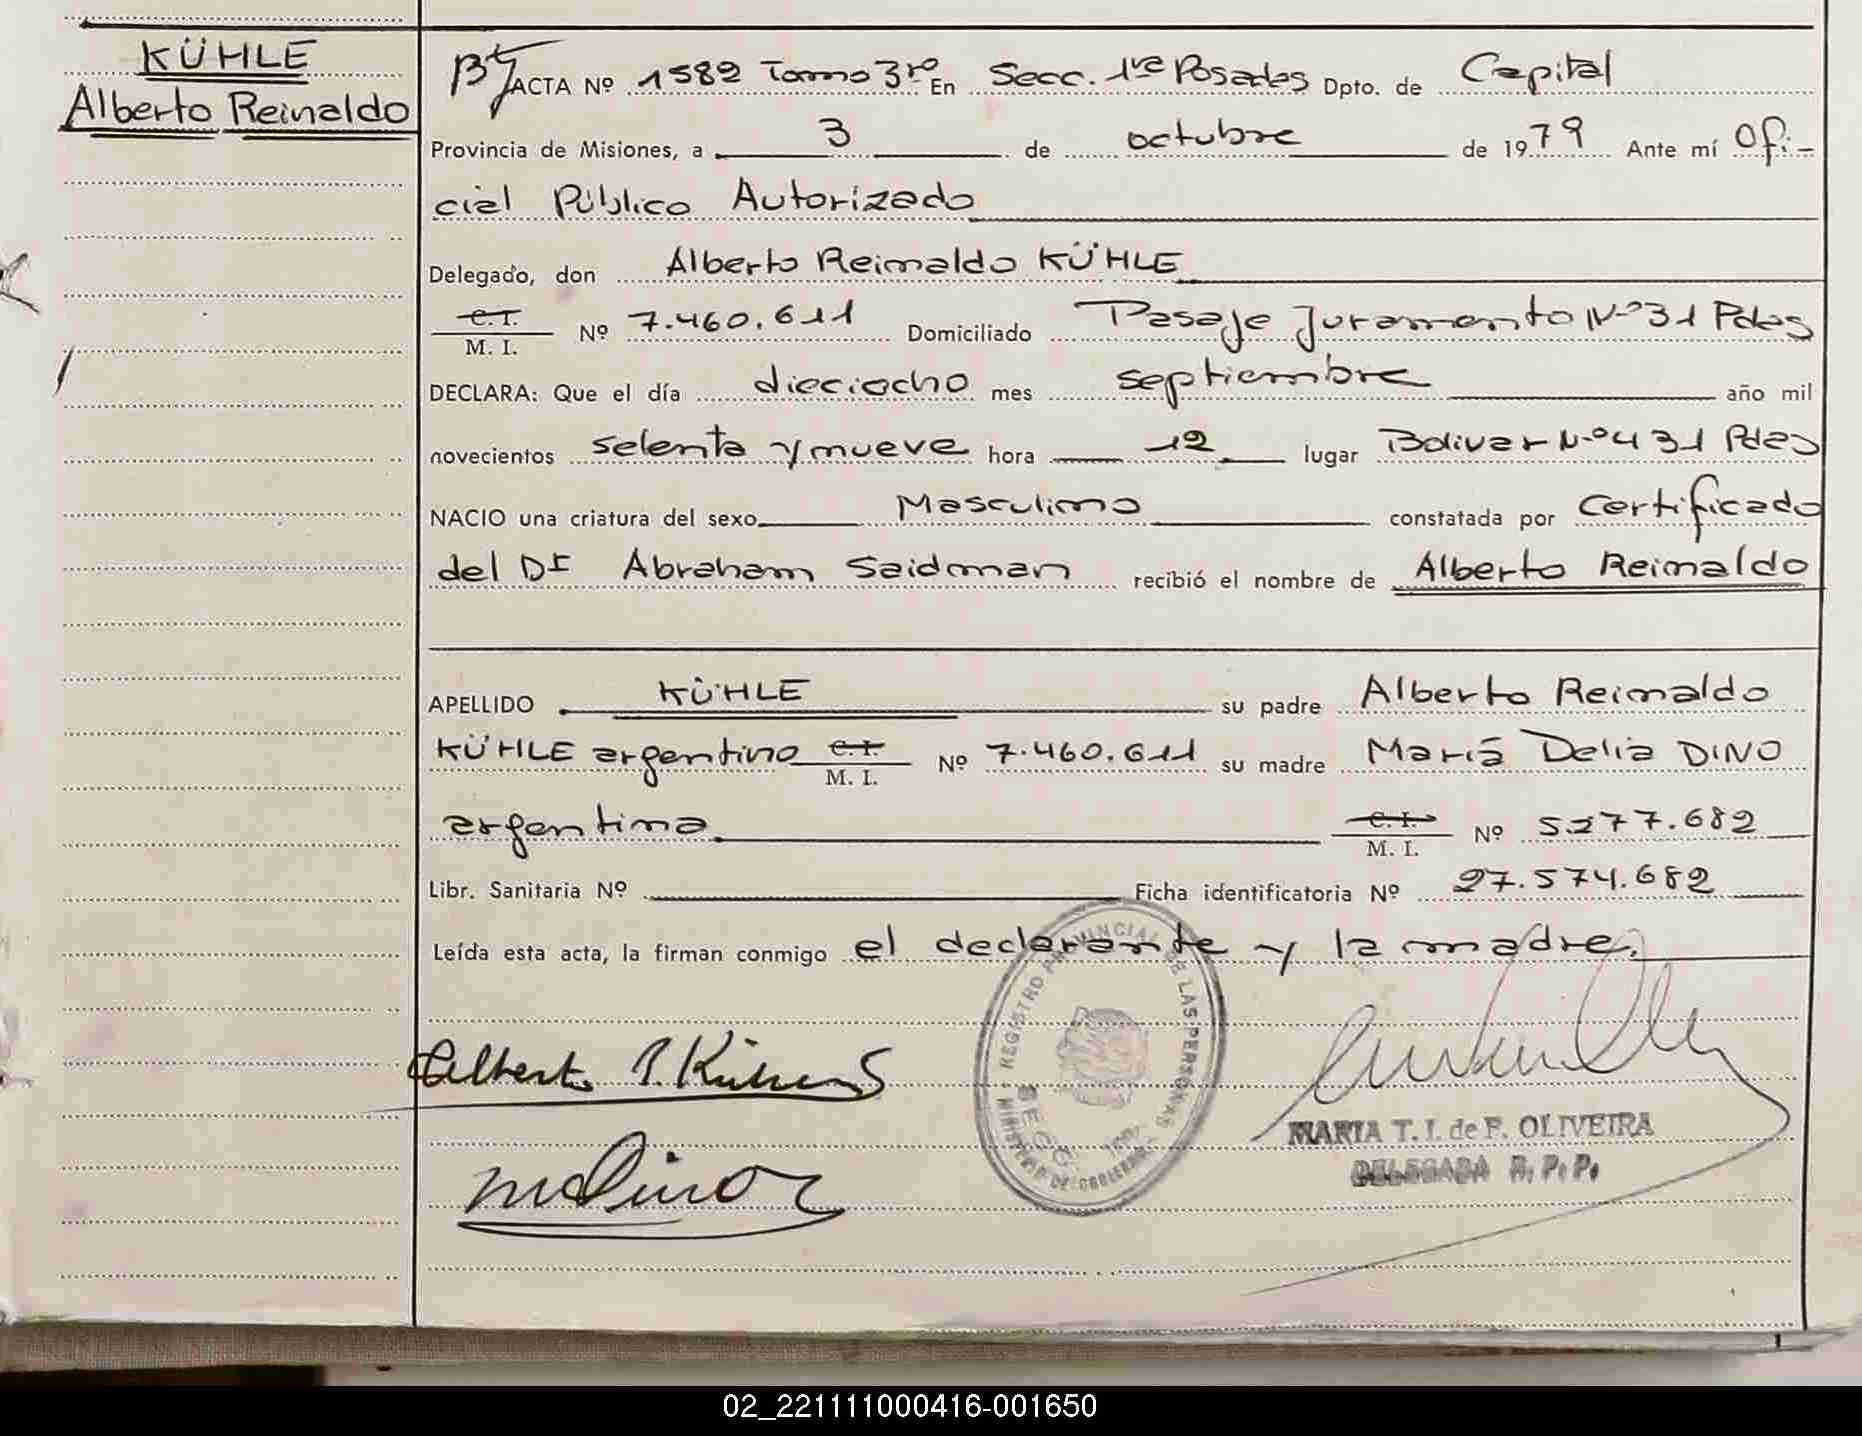 KÜHLE
Alberto Reinaldo
ACTA Nº 1582 Tomo 3ro En Secc. 1ra Posadas Dpto. de Capital
Provincia de Misiones, a 3 de octubre de 1979 Ante mí Ofi-
cial Público Autorizado
Delegado, don Alberto Reinaldo KÜHLE
C.I.
M. I. Nº 7.460.611 Domiciliado Pasaje Juramento Nº 31 Pdas
DECLARA: Que el día dieciocho mes septiembre año mil
novecientos setenta y nueve hora 12 lugar Bolivar Nº 431 Pdas
NACIO una criatura del sexo Masculino constatada por Certificado
del Dr Abraham Saidman recibió el nombre de Alberto Reinaldo
APELLIDO KÜHLE su padre Alberto Reinaldo
KÜHLE argentino C.I.
M. I. Nº 7.460.611 su madre María Delia DINO
argentina C.I.
M. I. Nº 5.277.682
Libr. Sanitaria Nº Ficha identificatoria Nº 27.574.682
Leída esta acta, la firman conmigo el declarante y la madre.
REGISTRO PROVINCIAL DE LAS PERSONAS
MINISTERIO DE GOBIERNO
SECC.
Alberto R. Kühle
MARIA T. I. de F. OLIVEIRA
DELEGADA R. P. P.
02_221111000416-001650